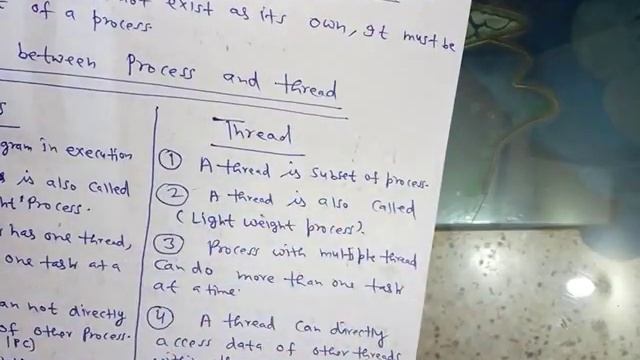 not exist as its own, It must be
of a process.
between Process and thread
gram in execution
is also called
Process.
has one thread,
one task at a
an not directly
of other Process.
(IPC)
Thread
① A thread is subset of process.
② A thread is also called
(Light weight process).
③ Process with multiple thread
can do more than one task
at a time.
④ A thread can directly
access data of other threads